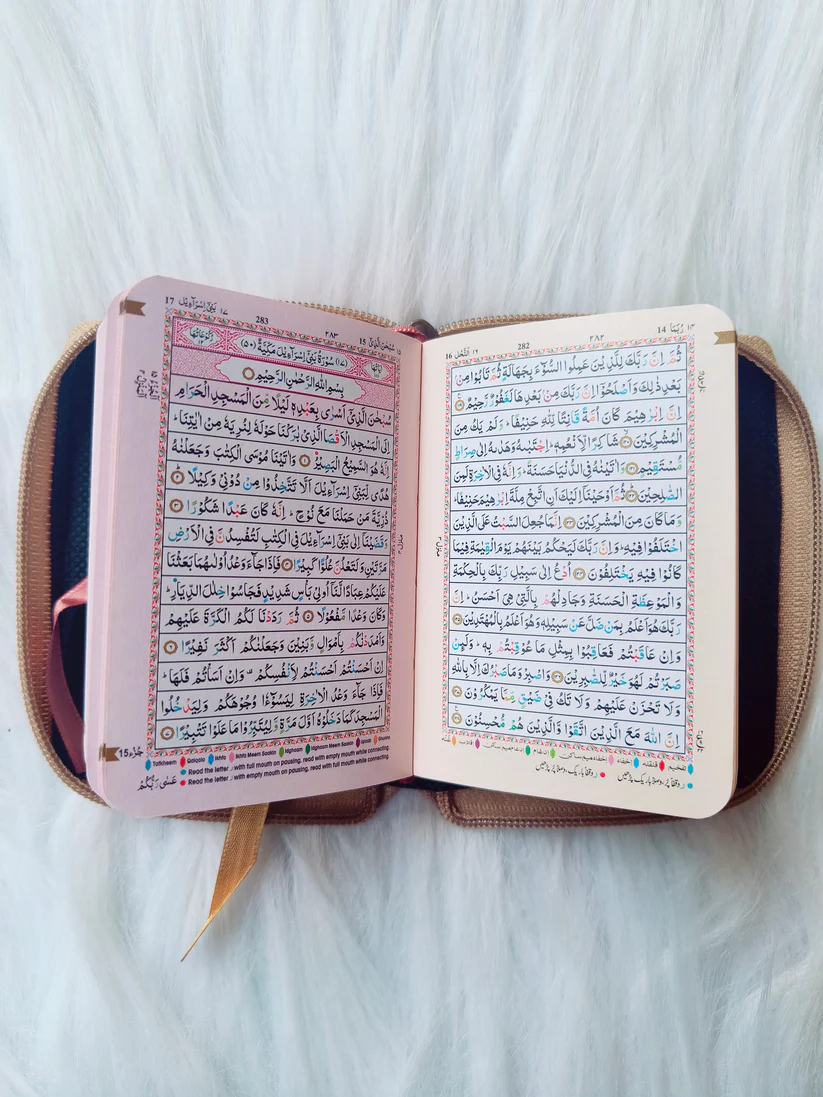 ١٤ رُبَمَا 14
٢٨٢ 282
اَلنَّحْل ١٦ 16
ثُمَّ اِنَّ رَبَّكَ لِلَّذِيْنَ عَمِلُوا السُّوْٓءَ بِجَهَالَةٍ ثُمَّ تَابُوْا مِنْۢ
بَعْدِ ذٰلِكَ وَاَصْلَحُوْۤا اِنَّ رَبَّكَ مِنْۢ بَعْدِهَا لَغَفُوْرٌ رَّحِيْمٌ
اِنَّ اِبْرٰهِيْمَ كَانَ اُمَّةً قَانِتًا لِّلّٰهِ حَنِيْفًا ؕ وَلَمْ يَكُ مِنَ
الْمُشْرِكِيْنَ ۙ شَاكِرًا لِّاَنْعُمِهٖ ؕ اِجْتَبٰىهُ وَهَدٰىهُ اِلٰى صِرَاطٍ
مُّسْتَقِيْمٍ وَاٰتَيْنٰهُ فِى الدُّنْيَا حَسَنَةً ؕ وَاِنَّهٗ فِى الْاٰخِرَةِ لَمِنَ
الصّٰلِحِيْنَ ؕ ثُمَّ اَوْحَيْنَاۤ اِلَيْكَ اَنِ اتَّبِعْ مِلَّةَ اِبْرٰهِيْمَ حَنِيْفًا ؕ
وَمَا كَانَ مِنَ الْمُشْرِكِيْنَ اِنَّمَا جُعِلَ السَّبْتُ عَلَى الَّذِيْنَ
اخْتَلَفُوْا فِيْهِ ؕ وَاِنَّ رَبَّكَ لَيَحْكُمُ بَيْنَهُمْ يَوْمَ الْقِيٰمَةِ فِيْمَا
كَانُوْا فِيْهِ يَخْتَلِفُوْنَ اُدْعُ اِلٰى سَبِيْلِ رَبِّكَ بِالْحِكْمَةِ
وَالْمَوْعِظَةِ الْحَسَنَةِ وَجَادِلْهُمْ بِالَّتِيْ هِيَ اَحْسَنُ ؕ اِنَّ
رَبَّكَ هُوَ اَعْلَمُ بِمَنْ ضَلَّ عَنْ سَبِيْلِهٖ وَهُوَ اَعْلَمُ بِالْمُهْتَدِيْنَ
وَاِنْ عَاقَبْتُمْ فَعَاقِبُوْا بِمِثْلِ مَا عُوْقِبْتُمْ بِهٖ ؕ وَلَئِنْ
صَبَرْتُمْ لَهُوَ خَيْرٌ لِّلصّٰبِرِيْنَ وَاصْبِرْ وَمَا صَبْرُكَ اِلَّا بِاللّٰهِ
وَلَا تَحْزَنْ عَلَيْهِمْ وَلَا تَكُ فِيْ ضَيْقٍ مِّمَّا يَمْكُرُوْنَ
اِنَّ اللّٰهَ مَعَ الَّذِيْنَ اتَّقَوْا وَّالَّذِيْنَ هُمْ مُّحْسِنُوْنَ
تفخیم قلقلہ اخفاء اخفاء میم ساکن ادغام ادغام میم ساکن اقلاب غنہ
١٥ سُبْحٰنَ الَّذِيْۤ 15
٢٨٣ 283
بَنِيْۤ اِسْرَآءِيْل ١٧ 17
اٰيَاتُهَا (١٧) سُوْرَةُ بَنِيْۤ اِسْرَآءِيْلَ مَكِّيَّةٌ (٥٠) رُكُوْعَاتُهَا
بِسْمِ اللّٰهِ الرَّحْمٰنِ الرَّحِيْمِ
سُبْحٰنَ الَّذِيْۤ اَسْرٰى بِعَبْدِهٖ لَيْلًا مِّنَ الْمَسْجِدِ الْحَرَامِ
اِلَى الْمَسْجِدِ الْاَقْصَا الَّذِيْ بٰرَكْنَا حَوْلَهٗ لِنُرِيَهٗ مِنْ اٰيٰتِنَا ؕ
اِنَّهٗ هُوَ السَّمِيْعُ الْبَصِيْرُ ١ وَاٰتَيْنَا مُوْسَى الْكِتٰبَ وَجَعَلْنٰهُ
هُدًى لِّبَنِيْۤ اِسْرَآءِيْلَ اَلَّا تَتَّخِذُوْا مِنْ دُوْنِيْ وَكِيْلًا ٢
ذُرِّيَّةَ مَنْ حَمَلْنَا مَعَ نُوْحٍ ؕ اِنَّهٗ كَانَ عَبْدًا شَكُوْرًا ٣
وَقَضَيْنَاۤ اِلٰى بَنِيْۤ اِسْرَآءِيْلَ فِى الْكِتٰبِ لَتُفْسِدُنَّ فِى الْاَرْضِ
مَرَّتَيْنِ وَلَتَعْلُنَّ عُلُوًّا كَبِيْرًا ٤ فَاِذَا جَآءَ وَعْدُ اُوْلٰىهُمَا بَعَثْنَا
عَلَيْكُمْ عِبَادًا لَّنَاۤ اُولِيْ بَاْسٍ شَدِيْدٍ فَجَاسُوْا خِلٰلَ الدِّيَارِ ؕ
وَكَانَ وَعْدًا مَّفْعُوْلًا ٥ ثُمَّ رَدَدْنَا لَكُمُ الْكَرَّةَ عَلَيْهِمْ
وَاَمْدَدْنٰكُمْ بِاَمْوَالٍ وَّبَنِيْنَ وَجَعَلْنٰكُمْ اَكْثَرَ نَفِيْرًا ٦
اِنْ اَحْسَنْتُمْ اَحْسَنْتُمْ لِاَنْفُسِكُمْ وَاِنْ اَسَاْتُمْ فَلَهَا ؕ
فَاِذَا جَآءَ وَعْدُ الْاٰخِرَةِ لِيَسُوْٓءٗا وُجُوْهَكُمْ وَلِيَدْخُلُوا
الْمَسْجِدَ كَمَا دَخَلُوْهُ اَوَّلَ مَرَّةٍ وَّلِيُتَبِّرُوْا مَا عَلَوْا تَتْبِيْرًا ٧
جُزْء 15
عَسٰى رَبُّكُمْ
Tafkheem Qalqala Ikhfa Ikhfa Meem Saakin Idghaam Idghaam Meem Saakin Iqlaab Ghunna
Read the letter ر with full mouth on pausing, read with empty mouth while connecting
Read the letter ر with empty mouth on pausing, read with full mouth while connecting